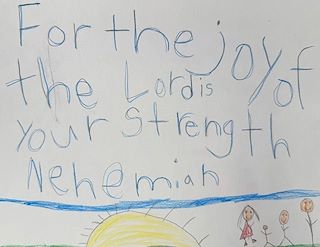 For the joy of
the Lord is
your strength
Nehemiah